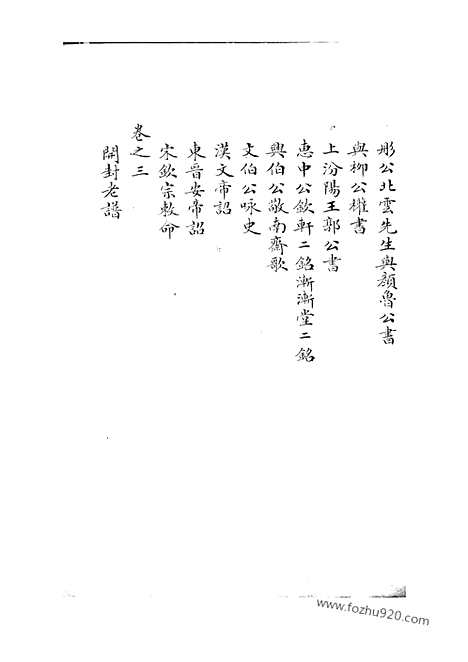 彤公北雲先生與顏魯公書
與柳公權書
上汾陽王郭公書
惠中公欽軒二銘漸漸堂二銘
興伯公敬南齋歌
文伯公咏史
漢文帝詔
東晉安帝詔
宋欽宗敕命
卷之三
開封老譜
www.fozhu920.com